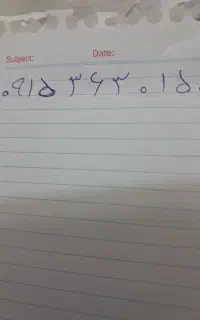 Subject: Date:
۰۹۱۵۳۶۳۰۱۵۰